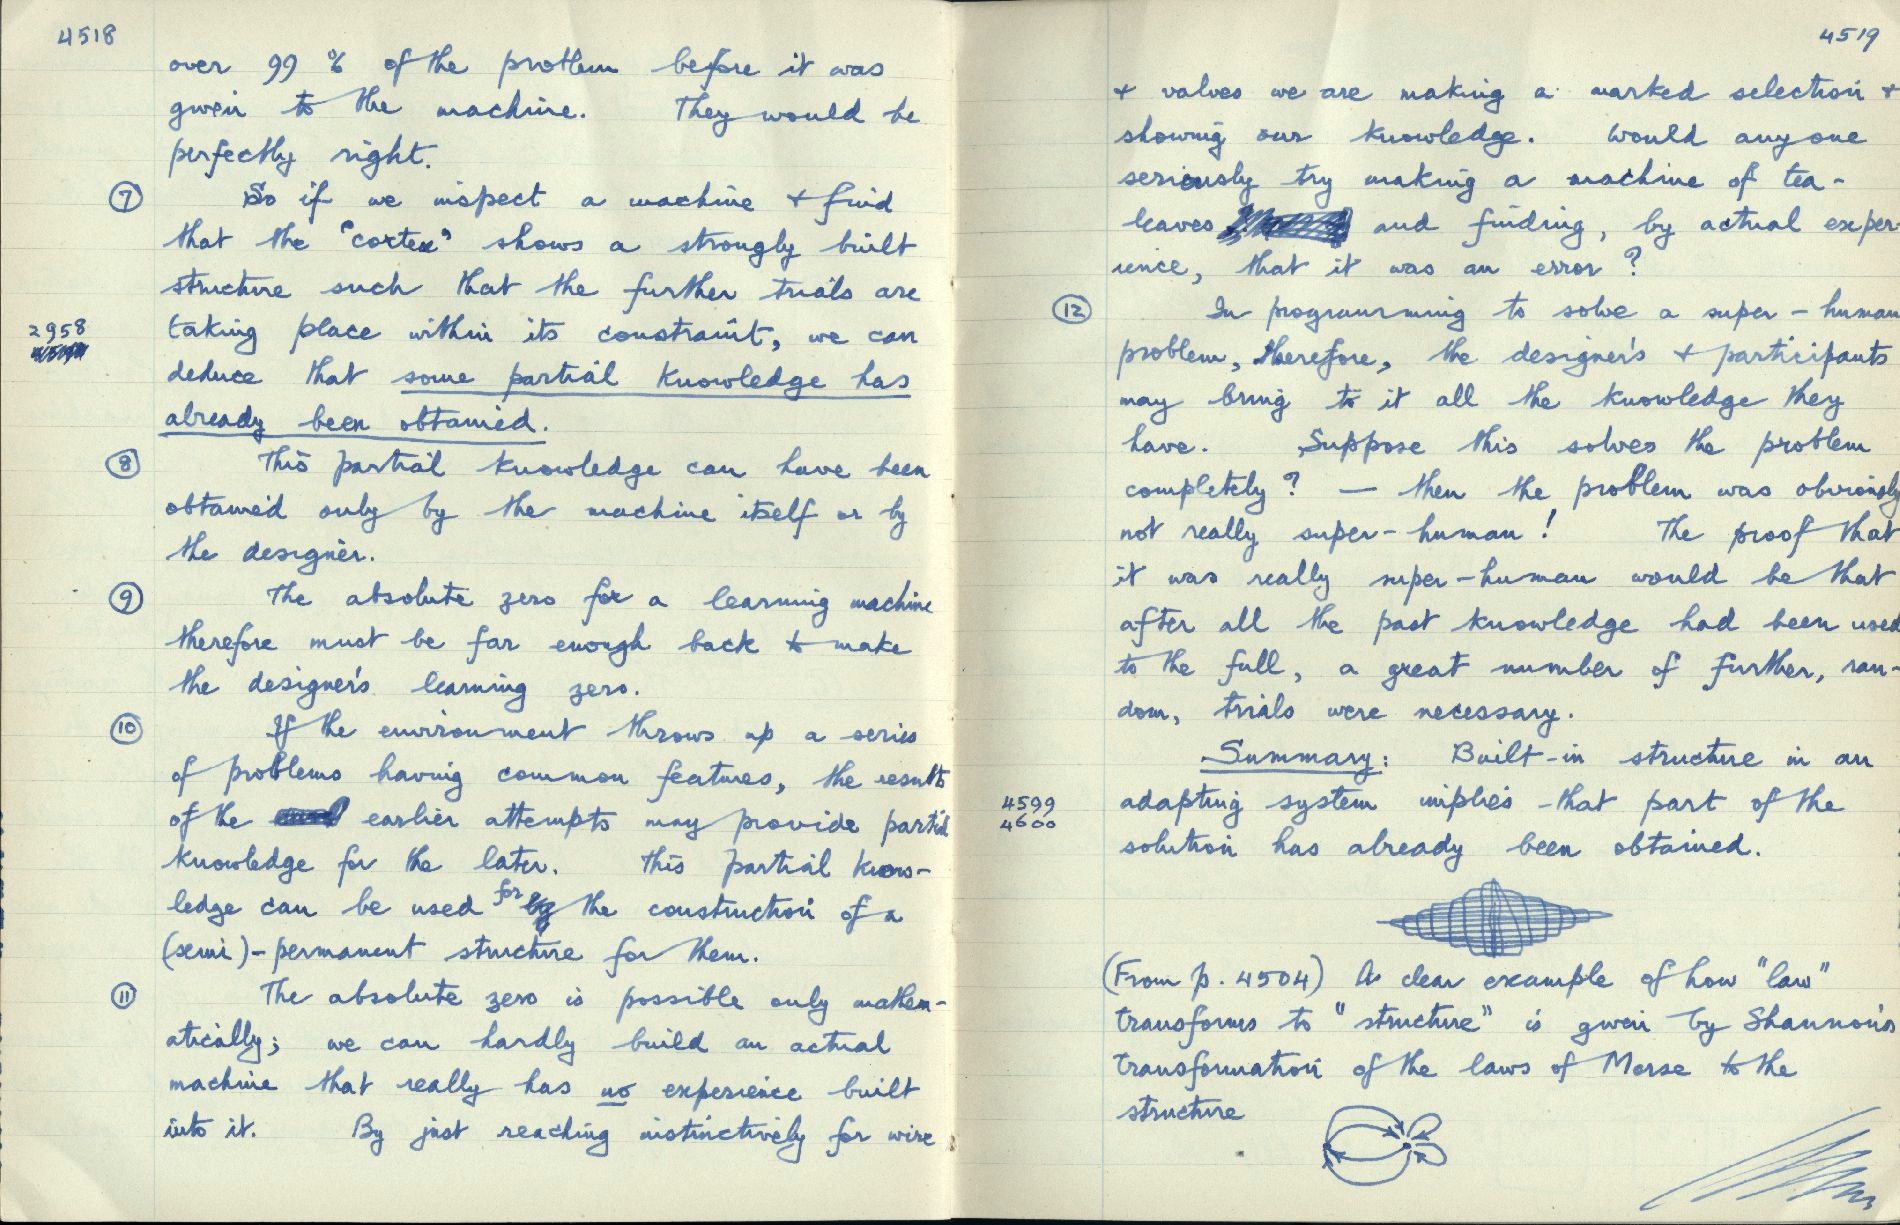 4518
over 99 % of the problem before it was
given to the machine. They would be
perfectly right.
⑦ So if we inspect a machine + find
that the "cortex" shows a strongly built
structure such that the further trials are
2958
taking place within its constraint, we can
deduce that some partial knowledge has
already been obtained.
⑧ This partial knowledge can have been
obtained only by the machine itself or by
the designer.
⑨ The absolute zero for a learning machine
therefore must be far enough back to make
the designer's learning zero.
⑩ If the environment throws up a series
of problems having common features, the results
of the earlier attempts may provide partial
knowledge for the later. This partial know-
ledge can be used for the construction of a
(semi)-permanent structure for them.
⑪ The absolute zero is possible only mathem-
atically; we can hardly build an actual
machine that really has no experience built
into it. By just reaching instinctively for wire
4519
+ valves we are making a marked selection +
showing our knowledge. Would anyone
seriously try making a machine of tea-
leaves and finding, by actual exper-
ience, that it was an error?
⑫ In programming to solve a super-human
problem, therefore, the designer's + participants
may bring to it all the knowledge they
have. Suppose this solves the problem
completely? — then the problem was obviously
not really super-human! The proof that
it was really super-human would be that
after all the past knowledge had been used
to the full, a great number of further, ran-
dom, trials were necessary.
Summary: Built-in structure in an
4599
4600
adapting system implies that part of the
solution has already been obtained.
(From p. 4504) A clear example of how "law"
transforms to "structure" is given by Shannon's
transformation of the laws of Morse to the
structure